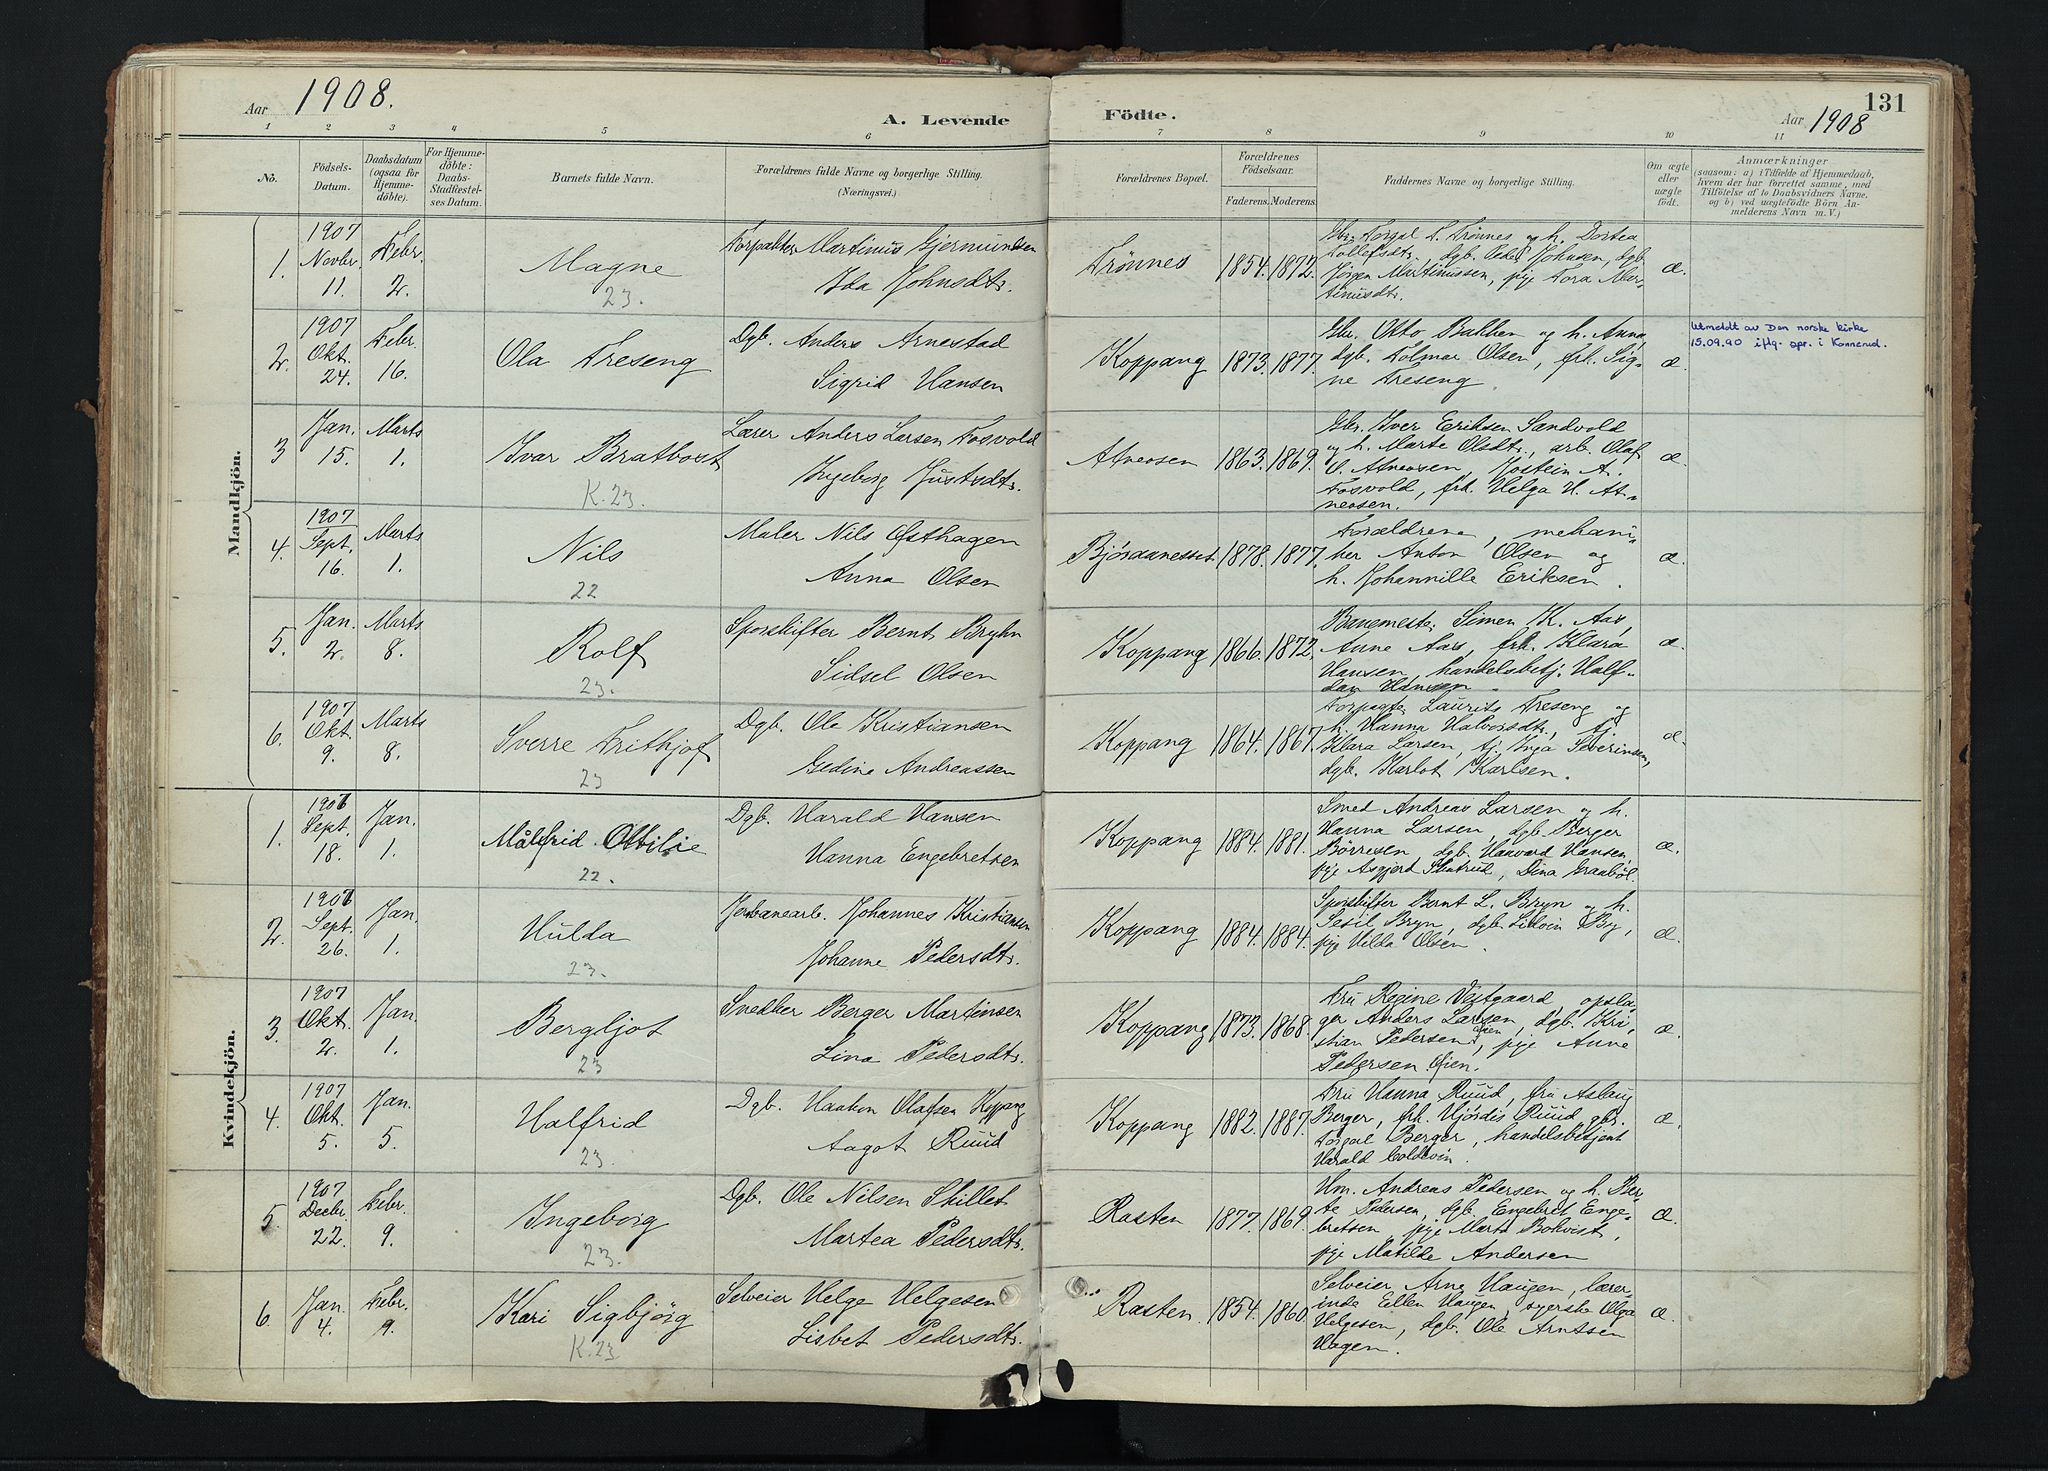 Aar 1908.
A. Levende Födte.
Aar 1908
131
1 2 3 4 5 6 7 8 9 10 11
No.
Födsels-
Datum.
Daabsdatum
(ogsaa for
Hjemme-
døbte).
For Hjemme-
døbte:
Daabs-
Stadfæstel-
ses Datum.
Barnets fulde Navn.
Forældrenes fulde Navne og borgerlige Stilling.
(Næringsvei.)
Forældrenes Bopæl.
Forældrenes
Födselsaar.
Faderens. Moderens.
Faddernes Navne og borgerlige Stilling.
Om ægte
eller
uægte
født.
Anmærkninger
(saasom: a) i Tilfælde af Hjemmedaab,
hvem der har forrettet samme, med
Tilföielse af to Daabsvidners Navne,
og b) ved uægtefödte Börn An-
melderens Navn m. V.)
Mandkjön.
1. 1907 Novbr. 11. Febr. 2. Magne 23.
Forpakter Martinus Gjermundsen
Ida Johnsdtr.
Trönnes 1854. 1872.
Gbr. Torgal T. Trönnes og h. Dortea
Tollefsdtr., dgb. Peder Johnsen, dgb.
Jörgen Martinussen, pige Tora Mar-
tinusdtr.
æ.
2. 1907 Okt. 24. Febr. 16. Ola Treseng
Dgb. Anders Arnestad
Sigrid Hansen
Koppang 1873. 1877.
Gbr. Otto Bakken og h. Anna,
dgb. Tolmar Olsen, frk. Sig-
ne Treseng
æ.
Utmeldt av Den norske kirke
15.09.90 iflg. spr. i Konnerud.
3 Jan. 15. Marts 1. Ivar Bratbost K. 23.
Lærer Anders Larsen Fosvold
Ingeborg Justsdtr.
Atneosen 1863. 1869.
Gbr. Iver Eriksen Sandvold
og h. Marte Olsdtr., arb. Olaf
O. Atneosen, Jostein A.
Fosvold, frk. Helga H. At-
neosen.
æ.
4. 1907 Sept. 16. Marts 1. Nils 22
Maler Nils Østhagen
Anna Olsen
Björaanesset 1878. 1877.
Forældrene, mekani-
ker Anton Olsen og
h. Johannille Eriksen.
æ.
5. Jan. 2. Marts 8. Rolf 23.
Sporskifter Bernt Bryhn
Sidsel Olsen
Koppang 1866. 1872.
Banemester Simen K. Aas,
Anne Aars, frk. Klara
Hansen, handelsbetj. Half-
dan Hansen
æ.
6. 1907 Okt. 9. Marts 8. Sverre Frithjof 23
Dgb. Ole Kristiansen
Gedine Andreassen
Koppang 1864. 1867.
Forpagter Laurits Treseng og
h. Hanna Halvorsdtr., tj.
Klara Larsen, tj. Inga Severinsen,
dgb. Karlot Karlsen.
æ.
Kvindekjön.
1. 1907 Sept. 18. Jan. 1. Målfrid Ottilie 22.
Dgb. Harald Hansen
Hanna Engebretsen
Koppang 1884. 1881.
Smed Andreas Larsen og h.
Hanna Larsen, dgb. Berger
Börresen, dgb. Haavard Hansen,
pige Asgjerd Skutrud, Dina Graaböl.
æ.
2. 1907 Sept. 26. Jan. 1. Hulda 23.
Jernbanearb. Johannes Kristiansen
Johanne Pedersdtr.
Koppang 1884. 1884.
Sporskifter Bernt L. Bryn og h.
Sesil Bryn, dgb. By,
pige Hilda Olsen.
æ.
3. 1907 Okt. 2. Jan. 1. Bergljot 23
Snedker Berger Martinsen
Lina Pedersdtr.
Koppang 1873. 1868.
Fru Regine Vestgaard, opsla-
ger Anders Larsen, dgb. Kri-
stian Pedersen Øien, pige Anne
Pedersen Øien.
æ.
4. 1907 Okt. 5. Jan. 5. Halfrid 23.
Dgb. Haakon Olafsen Koppang
Aagot Ruud
Koppang 1882. 1887.
Fru Hanna Ruud, fru Aslaug
Berger, frk. Hjördis Ruud, gbr.
Torgal Berger, handelsbetjent
Harald Coldevin.
æ.
5. 1907 Decbr. 22. Febr. 9. Ingeborg 23.
Dgb. Ole Nilsen Skillet
Martea Pedersdtr.
Rasten 1877. 1869.
Hm. Andreas Pedersen og h. Ber-
te Pedersen, dgb. Engebret Enge-
bretsen, pige Marta Bokvist,
pige Matilde Andersen
æ.
6. Jan. 4. Febr. 9. Kari Sigbjörg K. 23
Selveier Helge Helgesen
Lisbet Pedersdtr.
Rasten. 1854. 1860.
Selveier Arne Haugen, lærer-
inde Ellen Haugen, syerske Olga
Helgesen, dgb. Ole Arntsen
Hagen.
æ.